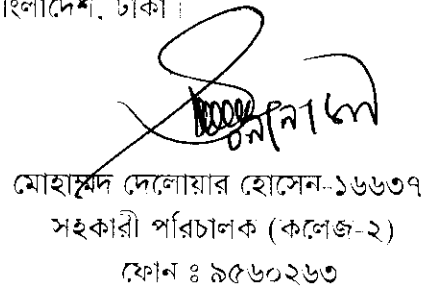 বাংলাদেশ, ঢাকা।
মোহাম্মদ দেলোয়ার হোসেন-১৬৬৩৭
সহকারী পরিচালক (কলেজ-২)
ফোন ঃ ৯৫৬০২৬৩